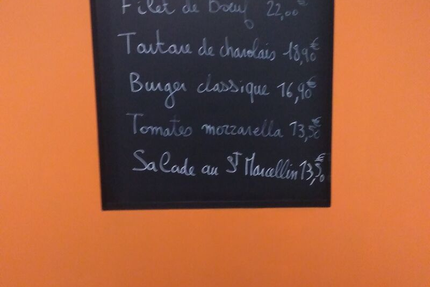 Filet de Bœuf 22,00€
Tartare de charolais 18,90€
Burger classique 16,90€
Tomates mozzarella 13,50€
Salade au St Marcellin 13,50€